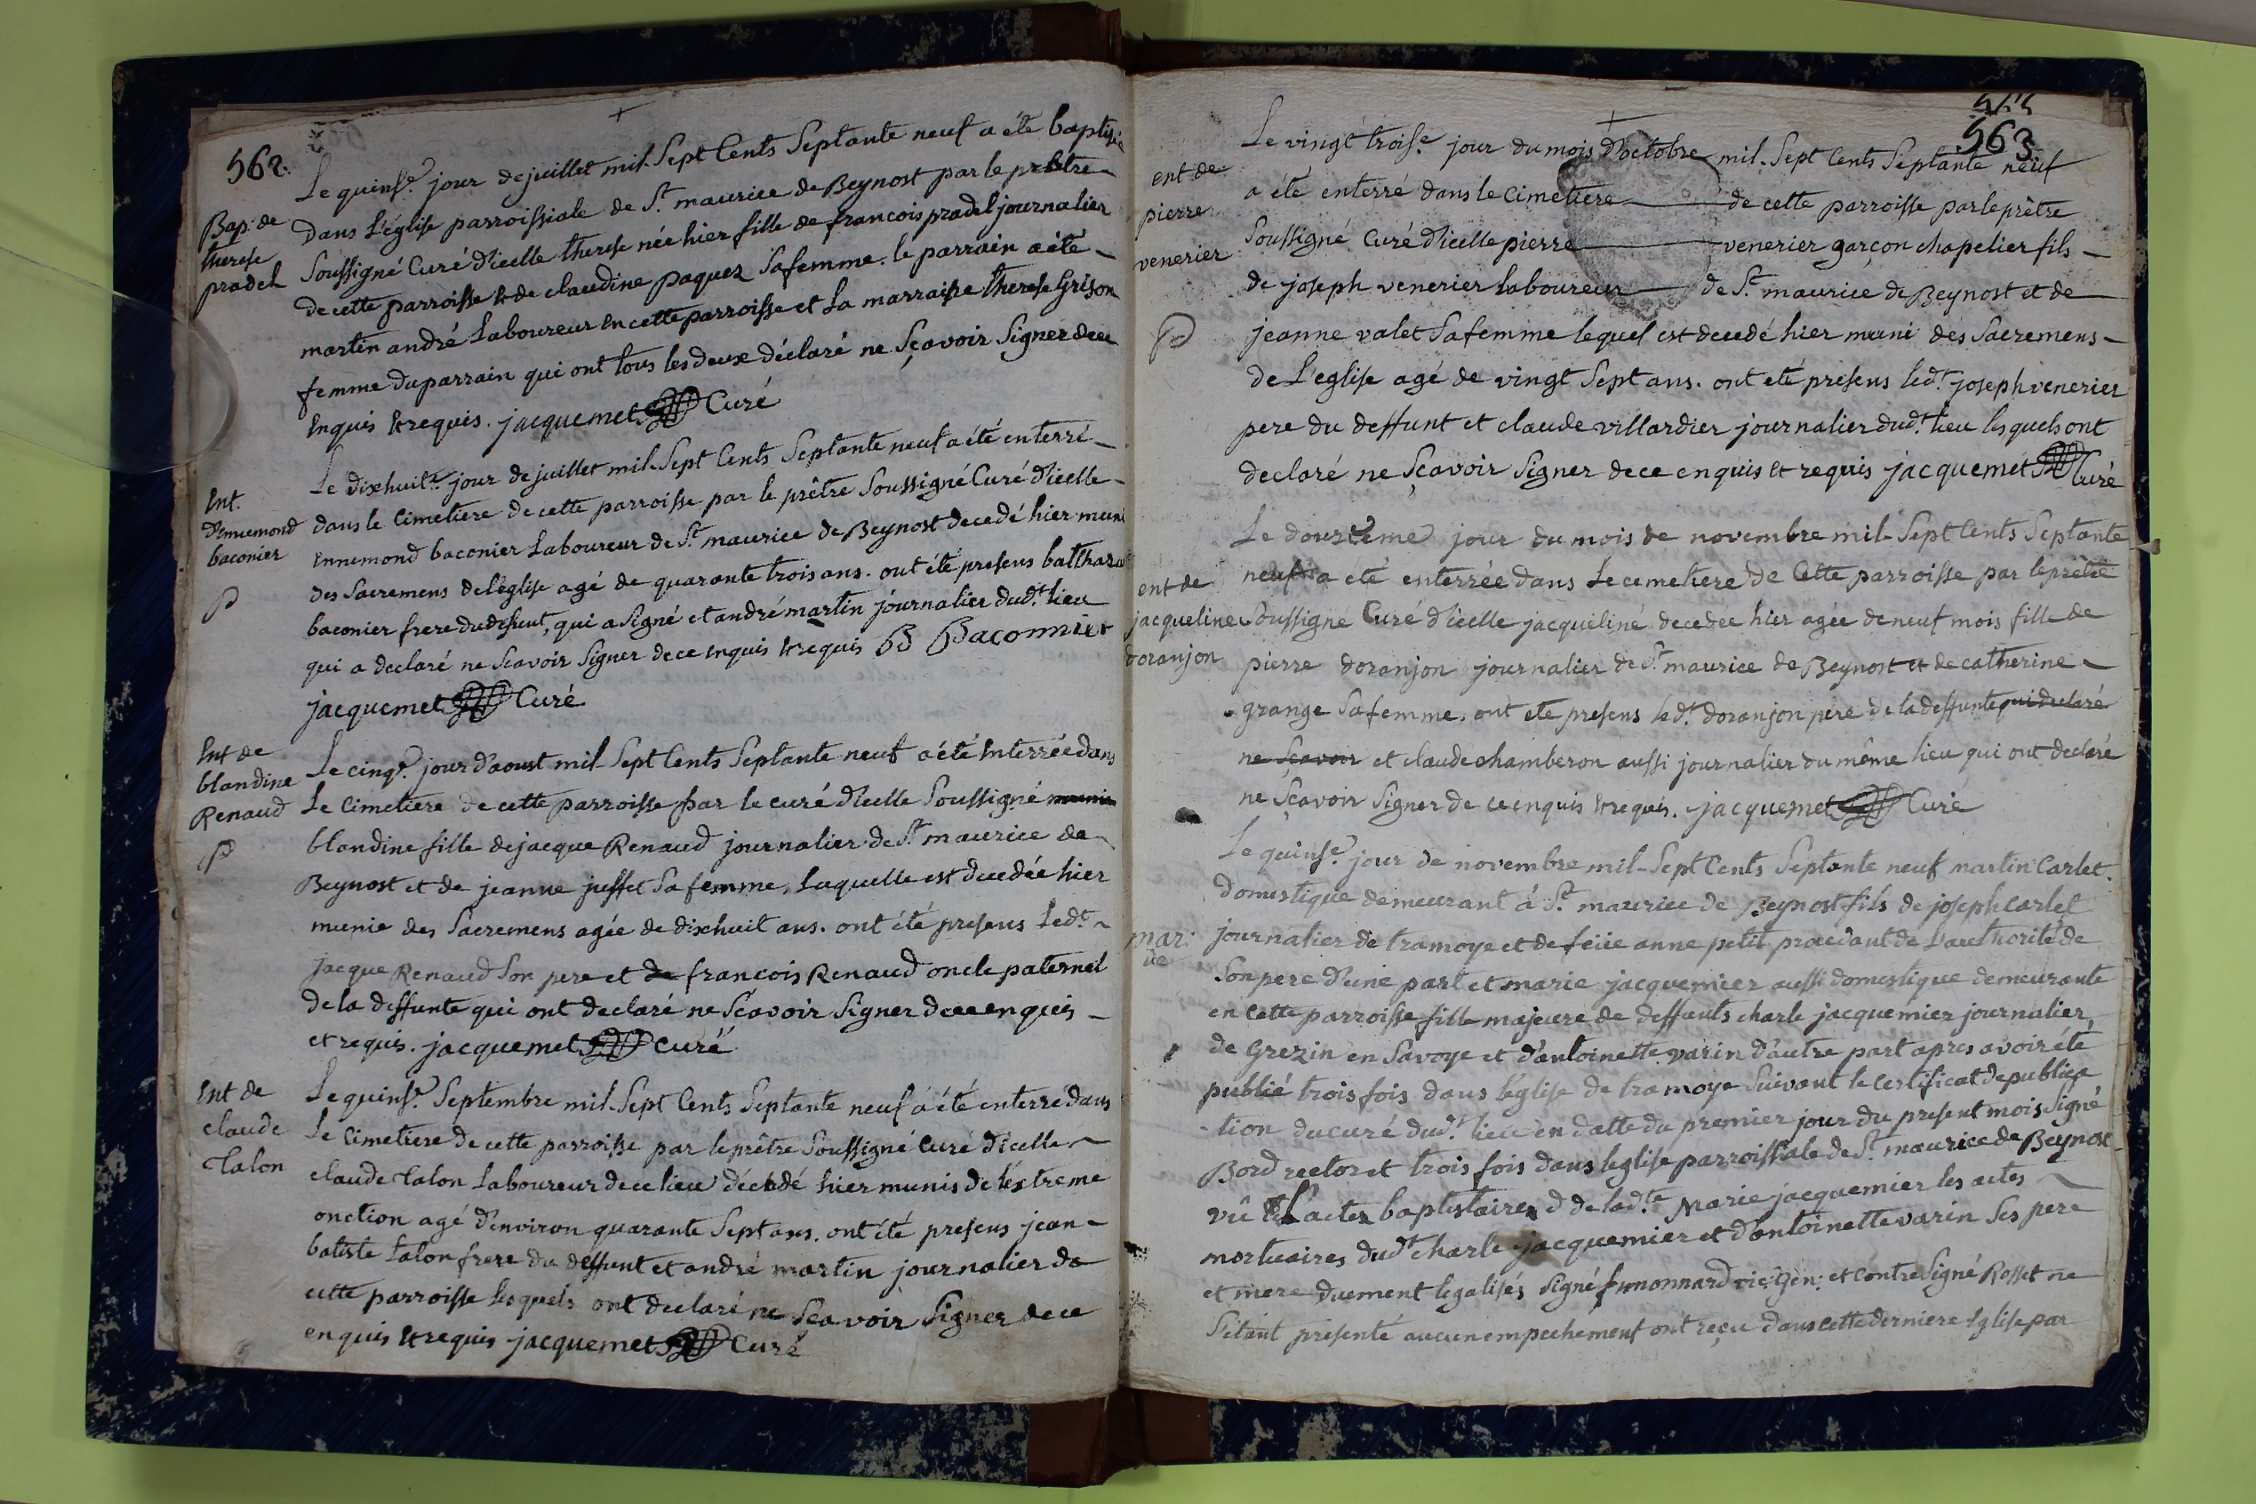 562.
Bap. de
therese
pradel
Le quinse. jour de juillet mil-Sept Cents Septante neuf a été baptisée
dans L'église parroissiale de St. maurice de Beynost par le prêtre
Soussigné Curé d'icelle therese née hier fille de francois pradel journalier
de cette parroisse et de claudine paquez Sa femme. le parrain a été
martin andré Laboureur en cette parroisse et La marraine therese Grison
femme du parrain qui ont tous les deux déclaré ne Sçavoir Signer de ce
enquis et requis. jacquemet Curé
Ent.
d'Ennemond
baconier
Le dixhuite. jour de juillet mil-Sept Cents Septante neuf a été enterré
dans le Cimetiere de cette parroisse par le prêtre Soussigné Curé d'icelle
Ennemond baconier Laboureur de St. maurice de Beynost decedé hier muni
des Sacremens de l'eglise agé de quarante trois ans. ont été presens balthazar
baconier frere du defunt, qui a Signé et andré martin journalier dudt. lieu
qui a declaré ne Scavoir Signer de ce enquis et requis B Baconnier
jacquemet Curé
Ent de
blandine
Renaud
Le cinqe. jour d'aoust mil-Sept Cents Septante neuf a été Enterrée dans
Le Cimetiere de cette parroisse par le curé d'icelle Soussigné munie
blandine fille de jacque Renaud journalier de St. maurice de
Beynost et de jeanne juffet Sa femme, Laquelle est decedée hier
munie des Sacremens agée de dixhuit ans. ont été presens Ledt.
jacque Renaud Son pere et de francois Renaud oncle paternel
de la deffunte qui ont declaré ne Scavoir Signer de ce enquis
et requis. jacquemet curé
Ent de
claude
Talon
Le quinse. Septembre mil-Sept Cents Septante neuf a été enterré dans
Le Cimetiere de cette parroisse par le prêtre Soussigné Curé d'icelle
claude Talon Laboureur de ce lieu décédé hier munis de l'extreme
onction agé d'environ quarante Sept ans. ont été presens jean
batiste talon frere du deffunt et andré martin journalier de
cette parroisse lesquels ont declaré ne Scavoir Signer de ce
enquis et requis jacquemet Curé
563
ent de
pierre
venerier
Le vingt troise. jour du mois d'octobre mil-Sept Cents Septante neuf
a été enterré dans le Cimetiere de cette parroisse par le prêtre
Soussigné Curé d'icelle pierre venerier garçon chapelier fils
de joseph venerier laboureur de St. maurice de Beynost et de
jeanne valet Sa femme lequel est decedé hier muni des Sacremens
de L'eglise agé de vingt Sept ans. ont été presens ledt. joseph venerier
pere du deffunt et claude villardier journalier dudt. lieu lesquels ont
declaré ne Sçavoir Signer de ce enquis et requis jacquemet Curé
ent de
jacqueline
doranjon
Le douzieme jour du mois de novembre mil-Sept Cents Septante
neuf a été enterrée dans Le cemetiere de Cette parroisse par le prêtre
Soussigné Curé d'icelle jacqueline decedée hier agée de neuf mois fille de
pierre doranjon journalier de St. maurice de Beynost et de catherine
grange Sa femme. ont été presens ledt. doranjon pere de la deffunte qui declaré
ne Sçavoir et claude chamberon aussi journalier du même lieu qui ont declaré
ne Sçavoir Signer de ce enquis et requis. jacquemet Curé
mar:
de
Le quinse. jour de novembre mil-Sept Cents Septante neuf martin Carlet
domestique demeurant à St. maurice de Beynost fils de joseph Carlet
journalier de tramoye et de feüe anne petit procedant de L'authorité de
Son pere d'une part et marie jacquemier aussi domestique demeurante
en cette parroisse fille majeure de deffunts charle jacquemier journalier
de Grezin en Savoye et d'antoinette varin d'autre part apres avoir été
publié trois fois dans l'église de tramoye Suivant le certificat de publica
-tion du curé dudt. lieu en datte du premier jour du present mois Signé
Bord rector et trois fois dans leglise parroissiale de St. maurice de Beynost
vû L'acte baptistaire de ladte. Marie jacquemier les actes
mortuaires dudt charle jacquemier et d'antoinette varin Ses pere
et mere duement legalisés Signé fr. monnard vic. Gen: et contre Signé Rosset ne
S'etant presenté aucun empechement ont reçu dans cette derniere Eglise par